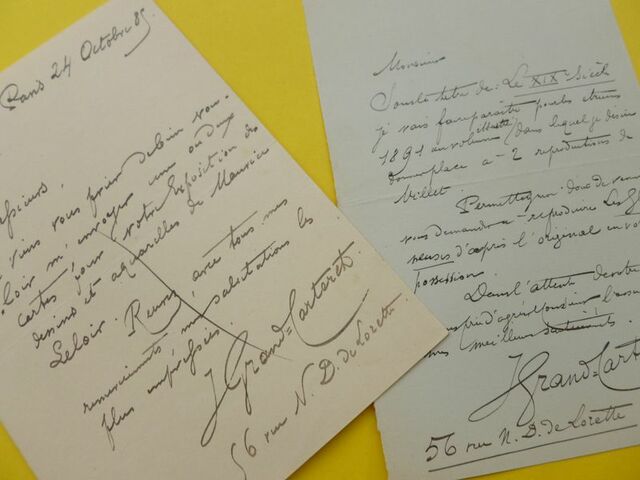 Paris 24 Octobre 85
Messieurs,
viens vous prier de bien vou-
loir m'envoyer une ou deux
cartes pour votre Exposition de
dessins et aquarelles de Maurice
Leloir. Recevez, avec tous mes
remerciements, mes salutations les
plus empressées.
J Grand-Carteret
56 rue N. D. de Lorette
Monsieur
Sous le titre de: Le XIXe Siècle
je vais faire paraître pour les étrennes
1891 un volume illustré dans lequel je désire
donner place à 2 reproductions de
Millet.
Permettez-moi donc de venir
vous demander à reproduire Les Gla
neuses d'après l'original en votre
possession.
Dans l'attente de votre
mes meilleurs sentiments.
J Grand-Carte
56 rue N. D. de Lorette